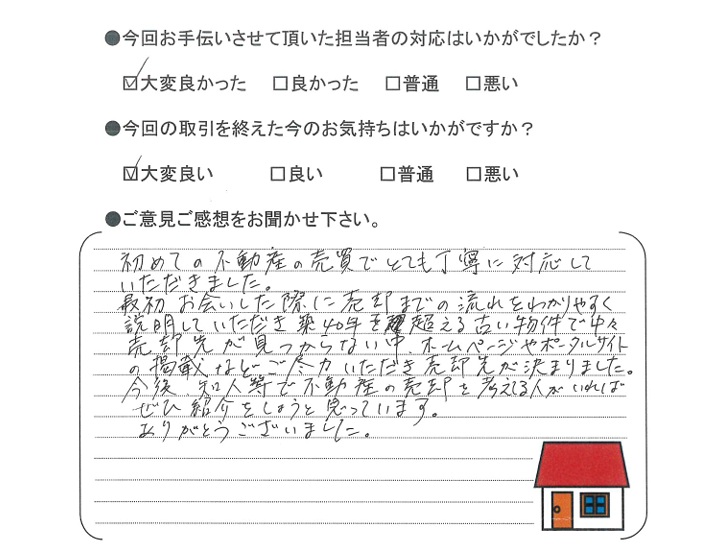 ●今回お手伝いさせて頂いた担当者の対応はいかがでしたか？
☑大変良かった　□良かった　□普通　□悪い
●今回の取引を終えた今のお気持ちはいかがですか？
☑大変良い　□良い　□普通　□悪い
●ご意見ご感想をお聞かせ下さい。
初めての不動産の売買でとても丁寧に対応して
いただきました。
最初お会いした際に売却までの流れをわかりやすく
説明していただき築40年を超える古い物件で中々
売却先が見つからない中、ホームページやポータルサイト
の掲載などご尽力いただき売却先が決まりました。
今後知人等で不動産の売却を考えてる人がいれば
ぜひ紹介をしようと思っています。
ありがとうございました。